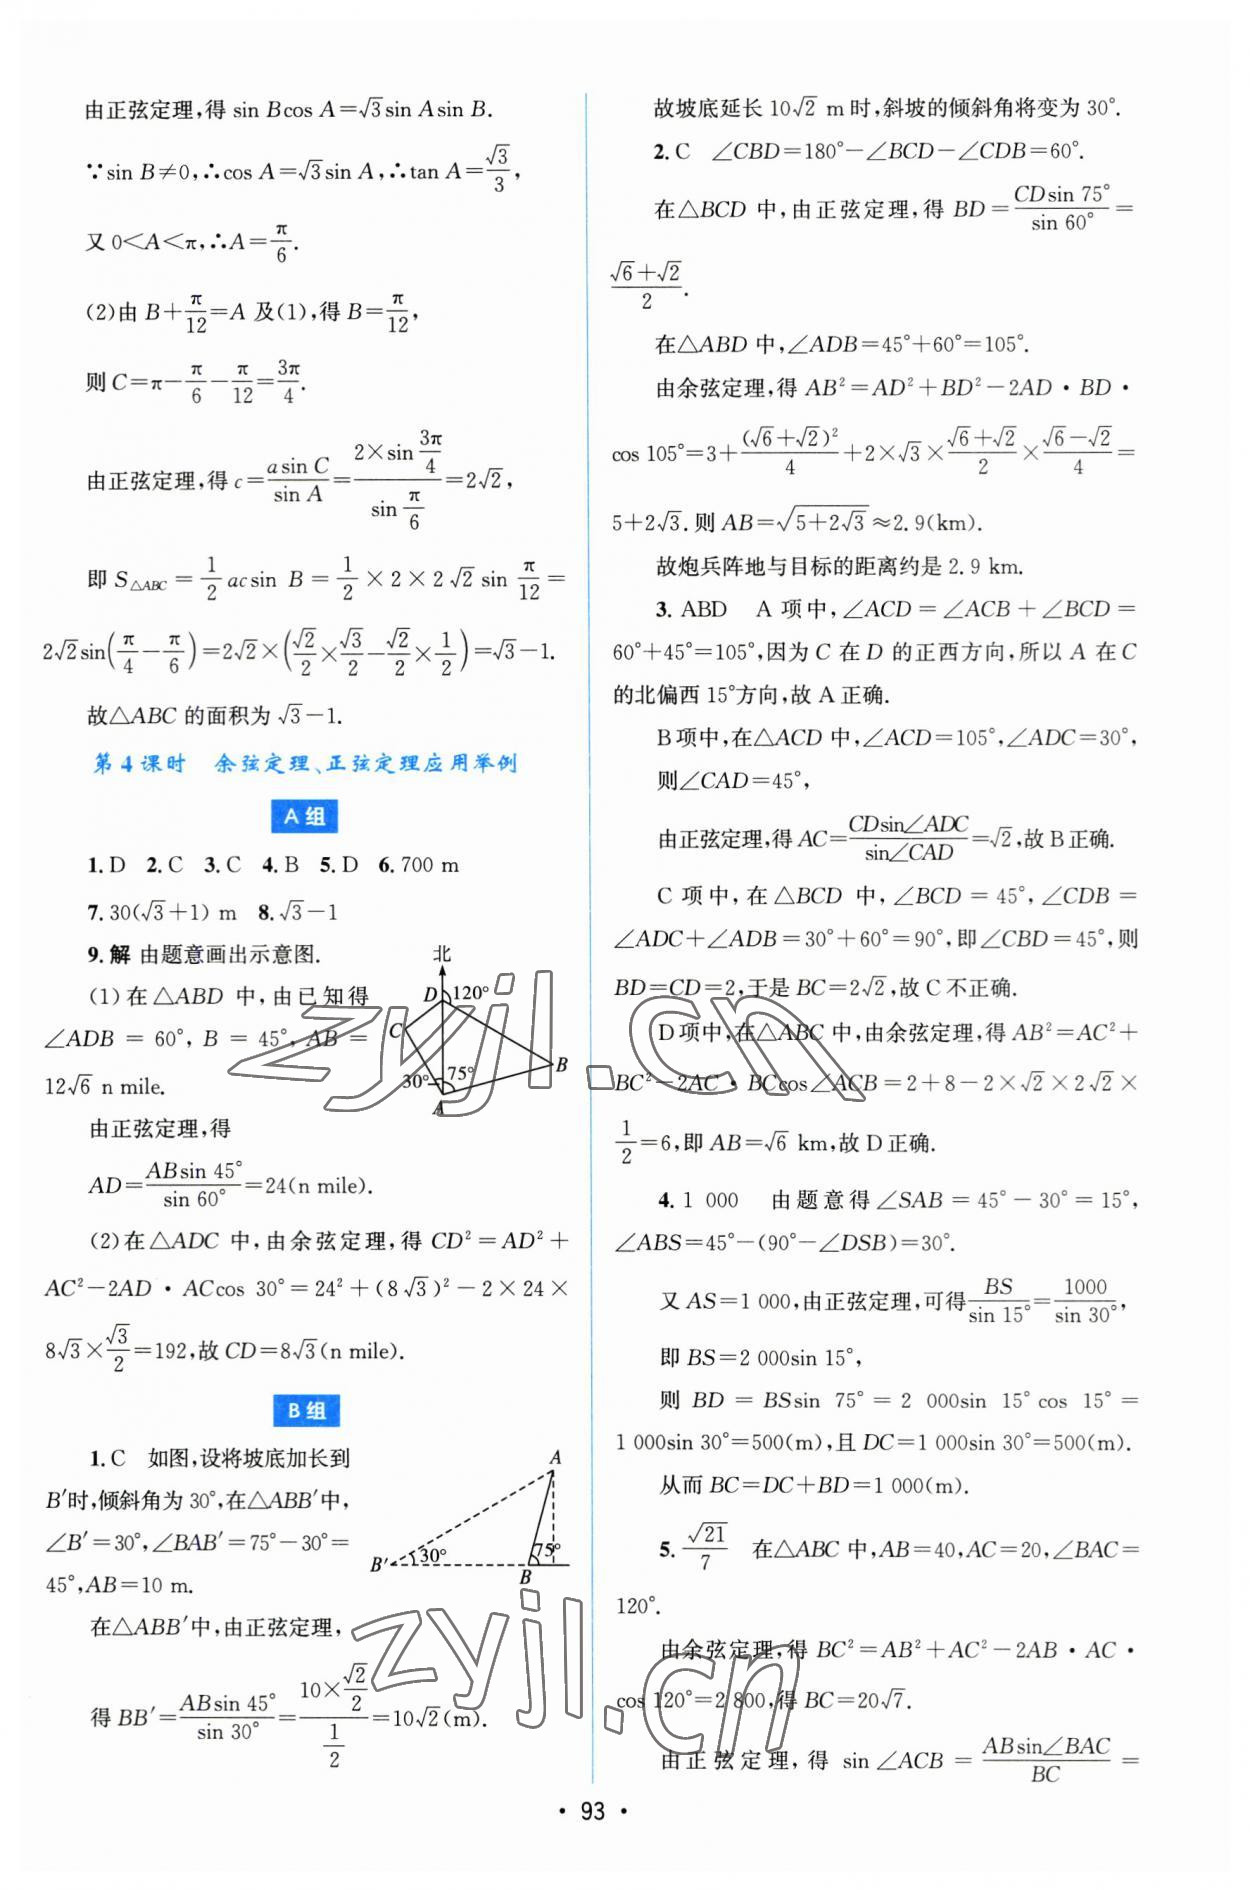 由正弦定理,得 sin Bcos A=√3sin Asin B.
∵sin B≠0,∴cos A=√3sin A,∴tan A=√3/3,
又 0<A<π,∴A=π/6.
(2)由 B+π/12=A 及(1),得 B=π/12,
则 C=π-π/6-π/12=3π/4.
由正弦定理,得 c=asin C/sin A=(2×sin 3π/4)/(sin π/6)=2√2,
即 S△ABC=1/2 acsin B=1/2×2×2√2 sin π/12=
2√2sin(π/4-π/6)=2√2×(√2/2×√3/2-√2/2×1/2)=√3-1.
故△ABC 的面积为 √3-1.
第 4 课时 余弦定理、正弦定理应用举例
A 组
1. D 2. C 3. C 4. B 5. D 6. 700 m
7. 30(√3+1) m 8. √3-1
9. 解 由题意画出示意图.
(1)在△ABD 中,由已知得
∠ADB=60°,B=45°,AB=
12√6 n mile.
由正弦定理,得
AD=ABsin 45°/sin 60°=24(n mile).
北
D 120°
C
B
30° 75°
A
(2)在△ADC 中,由余弦定理,得 CD²=AD²+
AC²-2AD·ACcos 30°=24²+(8√3)²-2×24×
8√3×√3/2=192,故 CD=8√3(n mile).
B 组
1. C 如图,设将坡底加长到
B′时,倾斜角为 30°,在△ABB′中,
∠B′=30°,∠BAB′=75°-30°=
45°,AB=10 m.
在△ABB′中,由正弦定理,
得 BB′=ABsin 45°/sin 30°=(10×√2/2)/(1/2)=10√2(m).
A
B′ 30° 75°
B
故坡底延长 10√2 m时,斜坡的倾斜角将变为 30°.
2. C ∠CBD=180°-∠BCD-∠CDB=60°.
在△BCD 中,由正弦定理,得 BD=CDsin 75°/sin 60°=
(√6+√2)/2.
在△ABD 中,∠ADB=45°+60°=105°.
由余弦定理,得 AB²=AD²+BD²-2AD·BD·
cos 105°=3+(√6+√2)²/4+2×√3×(√6+√2)/2×(√6-√2)/4=
5+2√3.则 AB=√(5+2√3)≈2.9(km).
故炮兵阵地与目标的距离约是 2.9 km.
3. ABD A 项中,∠ACD=∠ACB+∠BCD=
60°+45°=105°,因为 C 在 D 的正西方向,所以 A 在 C
的北偏西 15°方向,故 A 正确.
B项中,在△ACD 中,∠ACD=105°,∠ADC=30°,
则∠CAD=45°,
由正弦定理,得 AC=CDsin∠ADC/sin∠CAD=√2,故 B正确.
C 项中,在△BCD 中,∠BCD=45°,∠CDB=
∠ADC+∠ADB=30°+60°=90°,即∠CBD=45°,则
BD=CD=2,于是 BC=2√2,故 C不正确.
D 项中,在△ABC 中,由余弦定理,得 AB²=AC²+
BC²-2AC·BCcos∠ACB=2+8-2×√2×2√2×
1/2=6,即 AB=√6 km,故 D 正确.
4. 1 000 由题意得∠SAB=45°-30°=15°,
∠ABS=45°-(90°-∠DSB)=30°.
又 AS=1 000,由正弦定理,可得BS/sin 15°=1000/sin 30°,
即 BS=2 000sin 15°,
则 BD=BSsin 75°=2 000sin 15°cos 15°=
1 000sin 30°=500(m),且 DC=1 000sin 30°=500(m).
从而 BC=DC+BD=1 000(m).
5. √21/7 在△ABC 中,AB=40,AC=20,∠BAC=
120°.
由余弦定理,得 BC²=AB²+AC²-2AB·AC·
cos 120°=2 800,得 BC=20√7.
由正弦定理,得 sin∠ACB=ABsin∠BAC/BC=
· 93 ·
zyjl.cn
zyjl.cn